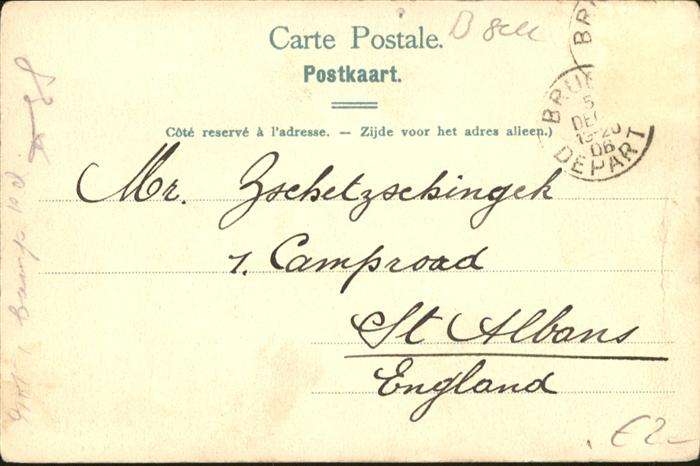 Carte Postale.
B
Postkaart.
Côté reservé à l'adresse. — Zijde voor het adres alleen.)
BRU
5
DEC
13-20
06
DEPART
Mr. Zschetzschingek
1. Camproad
St Albans
England
£2-